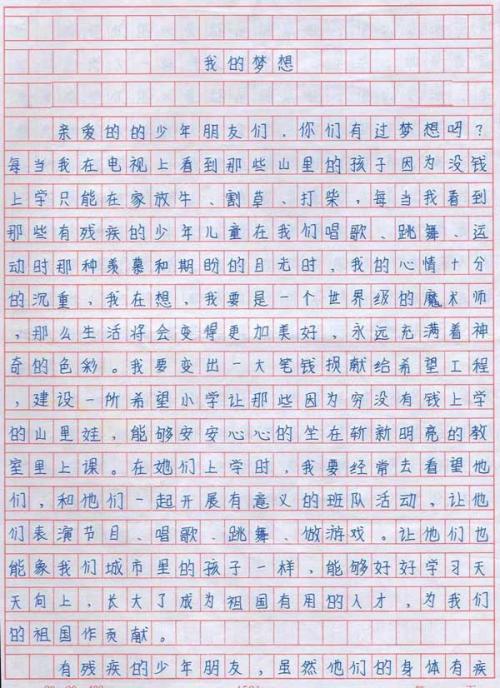 我的梦想
亲爱的的少年朋友们，你们有过梦想吗？
每当我在电视上看到那些山里的孩子因为没钱
上学只能在家放牛、割草、打柴，每当我看到
那些有残疾的少年儿童在我们唱歌、跳舞、运
动时那种羡慕和期盼的目光时，我的心情十分
的沉重，我在想，我要是一个世界级的魔术师
，那么生活将会变得更加美好，永远充满着神
奇的色彩。我要变出一大笔钱捐献给希望工程
，建设一所希望小学让那些因为穷没有钱上学
的山里娃，能够安安心心的坐在斩新明亮的教
室里上课。在她们上学时，我要经常去看望他
们，和他们一起开展有意义的班队活动，让他
们表演节目、唱歌、跳舞、做游戏。让他们也
能象我们城市里的孩子一样，能够好好学习天
天向上，长大了成为祖国有用的人才，为我们
的祖国作贡献。
有残疾的少年朋友，虽然他们的身体有疾